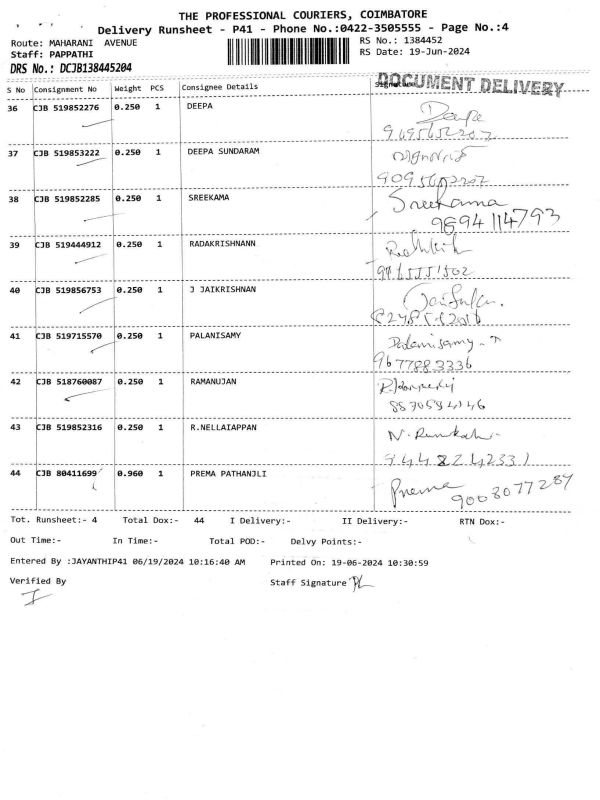 THE PROFESSIONAL COURIERS, COIMBATORE
Delivery Runsheet - P41 - Phone No.:0422-3505555 - Page No.:4
Route: MAHARANI AVENUE RS No.: 1384452
Staff: PAPPATHI RS Date: 19-Jun-2024
DRS No.: DCJB138445204
DOCUMENT DELIVERY
S No Consignment No Weight PCS Consignee Details Signature
36 CJB 519852276 0.250 1 DEEPA Deepa
37 CJB 519853222 0.250 1 DEEPA SUNDARAM
38 CJB 519852285 0.250 1 SREEKAMA Sreekama
9894114793
39 CJB 519444912 0.250 1 RADAKRISHNANN
40 CJB 519856753 0.250 1 J JAIKRISHNAN
41 CJB 519715570 0.250 1 PALANISAMY Palanisamy
9677883336
42 CJB 518760087 0.250 1 RAMANUJAN
43 CJB 519852316 0.250 1 R.NELLAIAPPAN
9448242331
44 CJB 80411699 0.960 1 PREMA PATHANJLI Prema
9003077287
Tot. Runsheet:- 4 Total Dox:- 44 I Delivery:- II Delivery:- RTN Dox:-
Out Time:- In Time:- Total POD:- Delvy Points:-
Entered By :JAYANTHIP41 06/19/2024 10:16:40 AM Printed On: 19-06-2024 10:30:59
Verified By Staff Signature